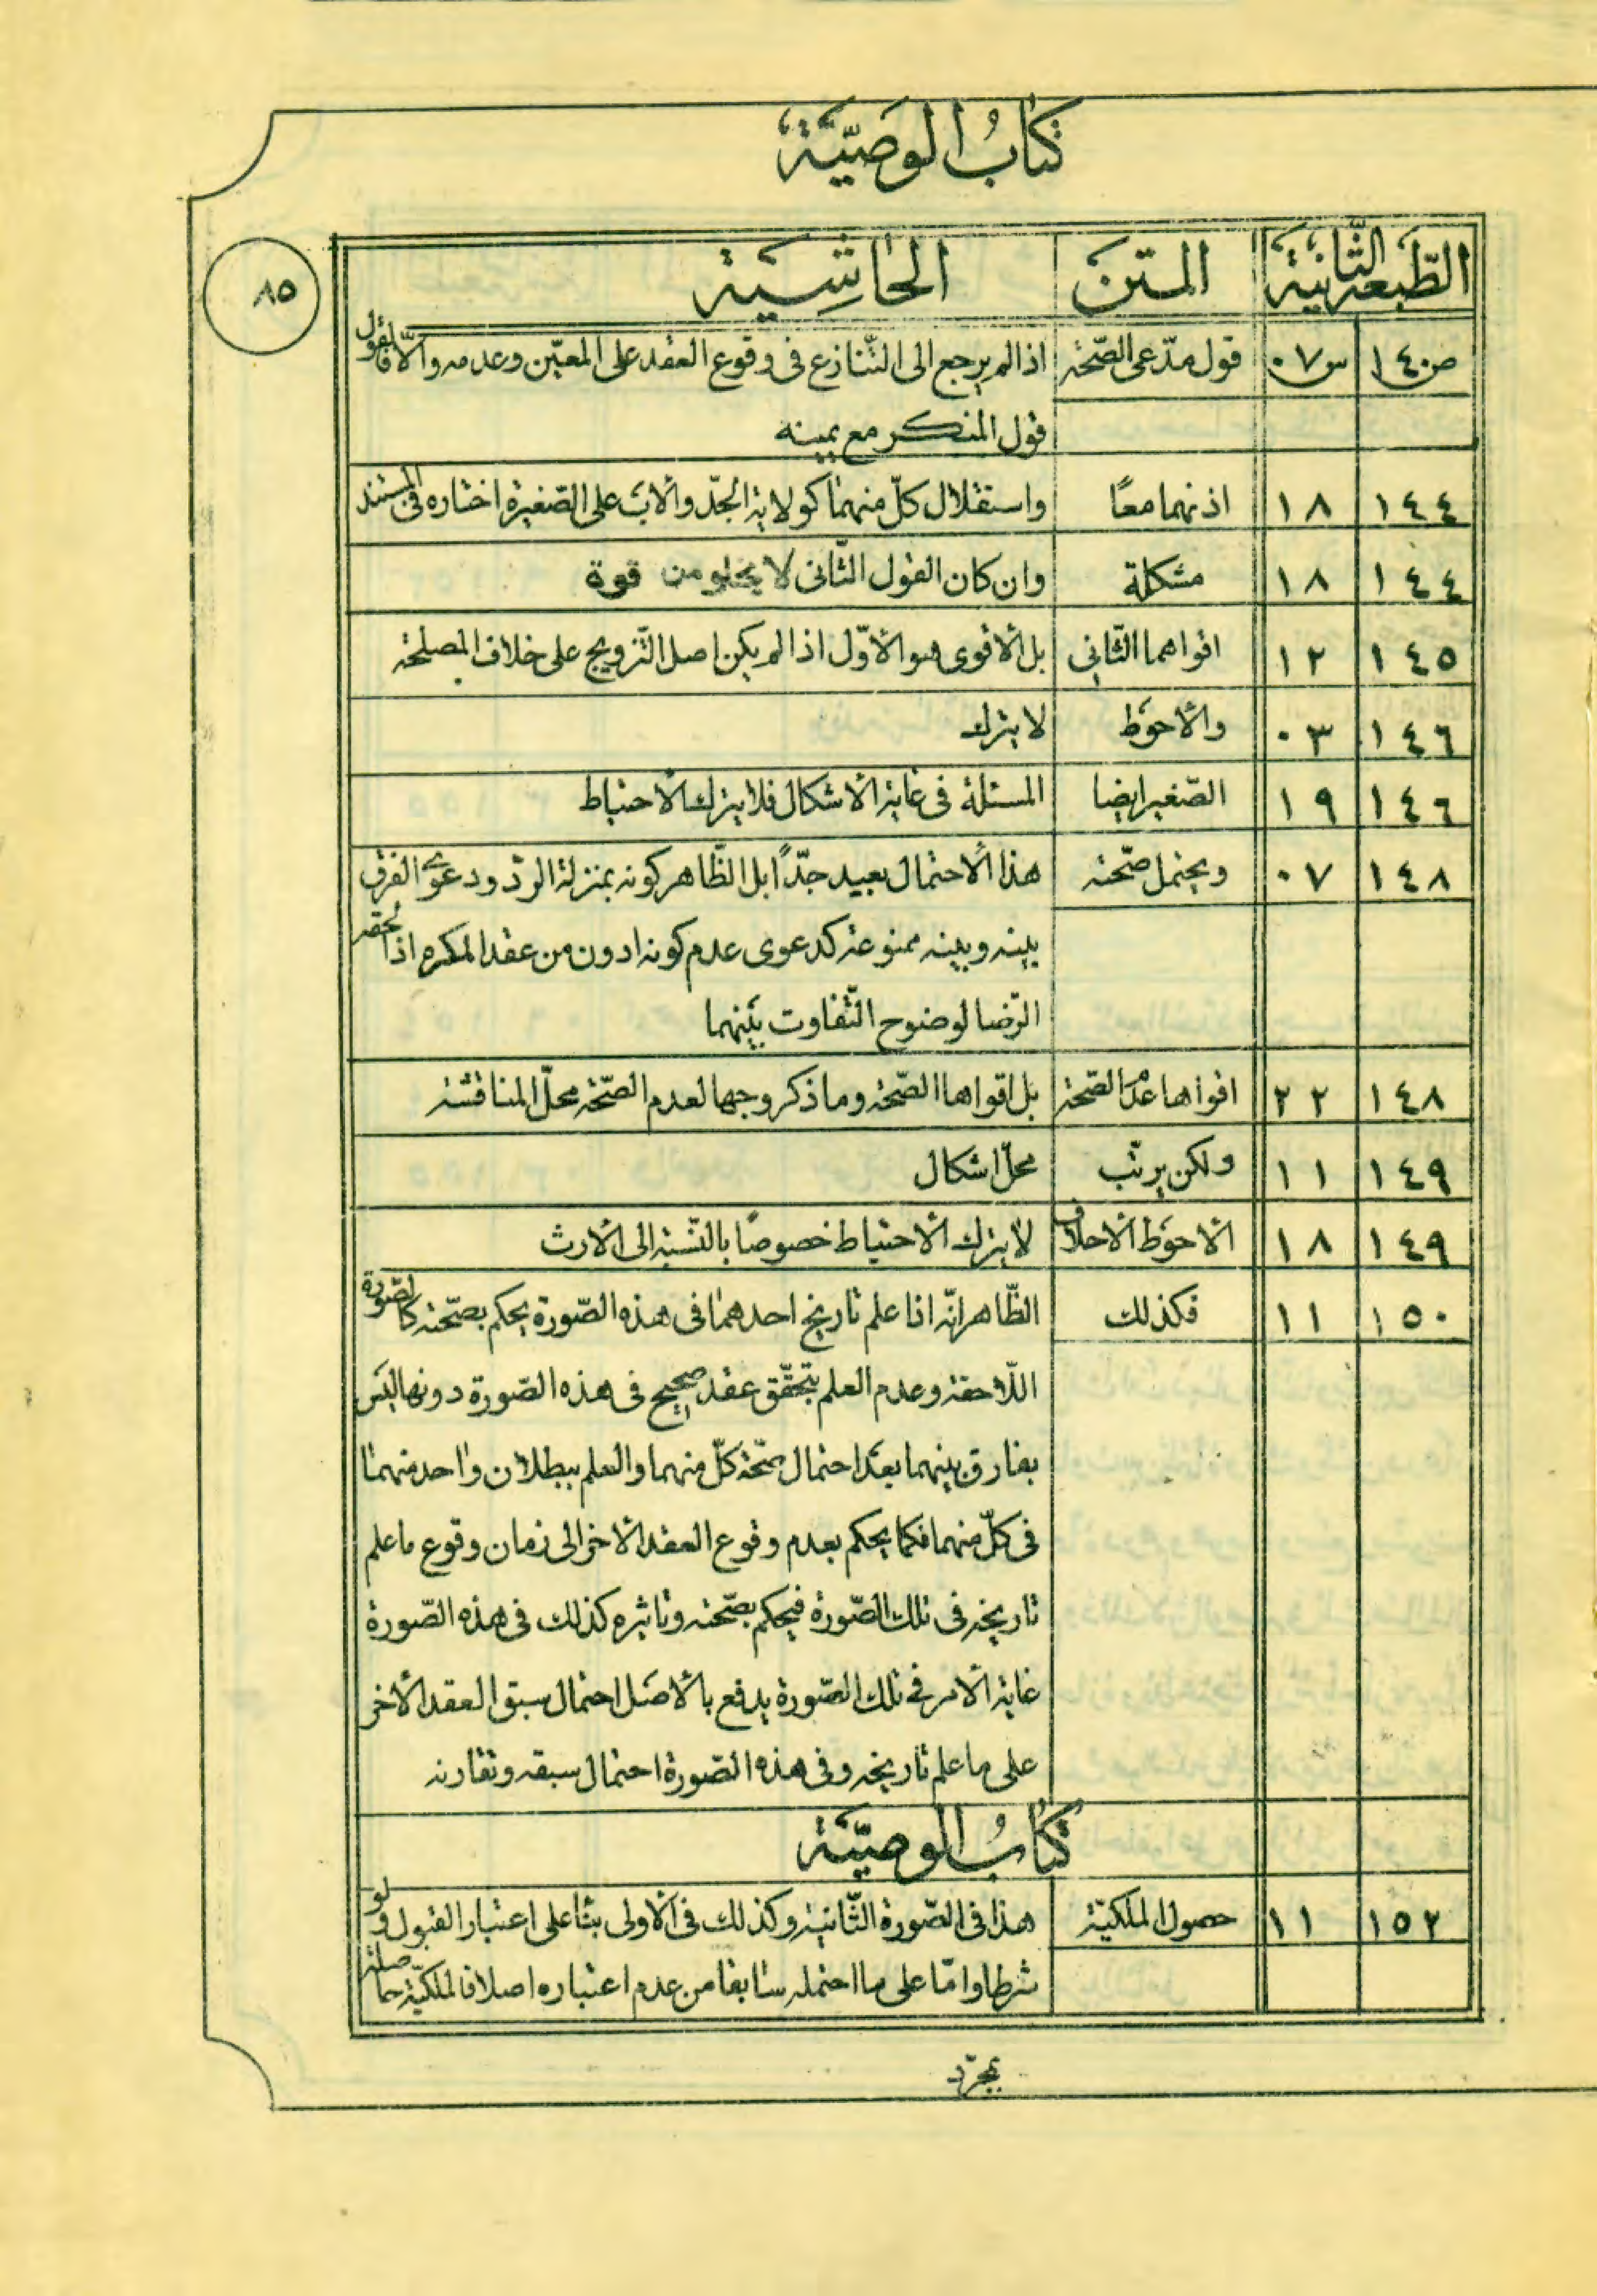 كتاب الوصيّة
٨٥
الطّبعة الثّانية المتن الحاشية
ص١٤٠ س٠٧ قول مدّعى الصّحّة اذا لم يرجع الى التّنازع فى وقوع العقد على المعيّن وعدمه والّا فالقول
قول المنكر مع يمينه
١٤٤ ١٨ اذنهما معًا واستقلال كلّ منهما كولاية الجدّ والاب على الصّغيرة اختاره فى المستند
١٤٤ ١٨ مشكلة وان كان القول الثّانى لا يخلو من قوة
١٤٥ ١٢ اقواهما الثّانى بل الاقوى هو الاوّل اذا لم يكن اصل التّزويج على خلاف المصلحة
١٤٦ ٠٣ والاحوَط لا يترك
١٤٦ ١٩ الصّغير ايضا المسئلة فى غاية الاشكال فلا يترك الاحتياط
١٤٨ ٠٧ ويحتمل صحّته هذا الاحتمال بعيد جدّاً بل الظّاهر كونه بمنزلة الردّ ودعوى الفرق
بينه وبينه ممنوعة كدعوى عدم كونه ادون من عقد المكره اذا لحقه
الرّضا لوضوح التّفاوت بَينهما
١٤٨ ٢٢ اقواها عدم الصّحة بل اقواها الصّحّة وما ذكر وجها لعدم الصّحّة محلّ المناقشة
١٤٩ ١١ ولكن يرتّب محلّ اشكال
١٤٩ ١٨ الاحوَط الاحلاف لا يترك الاحتياط خصوصًا بالنّسبة الى الارث
١٥٠ ١١ فكذلك الظّاهر انّه اذا علم تاريخ احدهما فى هذه الصّورة يحكم بصحّته كالصّورة
اللّاحقة وعدم العلم بتحقّق عقد صحيح فى هذه الصّورة دونها ليَس
بفارق بينهما بعَد احتمال صحّة كلّ منهما والعلم ببطلان واحد منهما
فى كلّ منهما فكما يحكم بعدم وقوع العقد الاخر الى زمان وقوع ما علم
تاريخه فى تلك الصّورة فيحكم بصّحته وتاثيره كذلك فى هذه الصّورة
غاية الامر فى تلك الصّورة يدفع بالاصَل احتمال سبق العقد الاخر
على ما علم تاريخه وفى هذه الصّورة احتمال سبقه وتقارنه
كتاب الوصيّة
١٥٢ ١١ حصول الملكيّة هذا فى الصّورة الثّانية وكذلك فى الاولى بناً على اعتبار القبول ولو
شرطا وامّا على ما احتمله سابقا من عدم اعتباره اصلا فالملكيّة حاصلة
بمجرّد